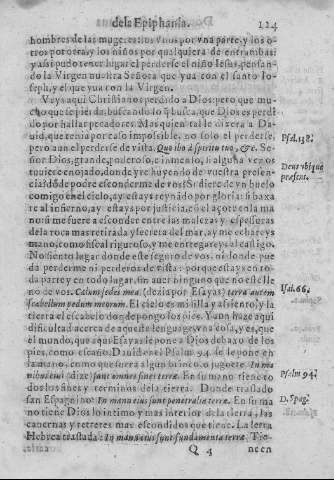 dela Epiphania. 124
hombres de las mugeres: los vnos por vna parte, y los o-
tros por otra, y los niños por qualquiera de entrambas:
y assi pudo tener lugar el perderse el niño Iesus, pensan-
do la Virgen nuestra Señora que yua con el santo Io-
seph, y el que yua con la Virgen.
Veys aqui Christianos perdido a Dios: pero que mu-
cho que se pierda, buscando lo q̃ busca, que Dios es perdi-
do por hallar pecadores. Mas quien tal le dixera a Da-
uid, que tenia por caso impossible, no solo el perderse,
pero aun el perderse de vista. Quo ibo à spiritu tuo, &c. Se- Psal. 138.
ñor Dios, grande, poderoso, e inmenso, si alguna vez os
tuuiere enojado, donde yre huyendo de vuestra presen- Deus vbique
cia? dõde podre esconderme de vos? Si diere de vn buelo præsens.
comigo en el cielo, ay estays reynãdo por gloria: si baxa
re al infierno, ay estays por justicia, cõ el açote en la ma
no: si me fuere a esconder entre las malezas y espessuras
de la roca mas retirada y lexos del mar, ay me echareys
mano, como fiscal riguroso, y me entregareys al castigo.
No siento lugar donde este seguro de vos, ni donde pue
da perderme ni perderos de vista: porque estays en to-
da parte, y en todo lugar, sin auer ninguno que no este lle
no de vos. Cælum sedes mea (dezia por Esayas) terra autem Isai. 66.
scabellum pedum meorum. El cielo es mi silla y assiento, y la
tierra el escabelo donde pongo los pies. Y aun haze aqui
dificultad acerca de aqueste lenguage vna cosa, y es, que
el mundo, que aqui Esayas le pone a Dios debaxo de los
pies, como escaño, Dauid en el Psalmo 94. se le pone en
la mano, como que fuera algun brinco, o juguete. In ma Psalm 94.
nibus eius (dize) sunt omnes fines terræ. En su mano tiene to
dos los fines y terminos de la tierra. Donde traslado
san Espagnino: In manu eius sunt penetralia terræ. En su ma D. Spag.
no tiene Dios lo intimo y mas interior de la tierra, las
cauernas y retretes mas escondidos que tiene. La letra
Hebrea traslada: In manu eius sunt fundamenta terræ. Tie-
Q 4 nen